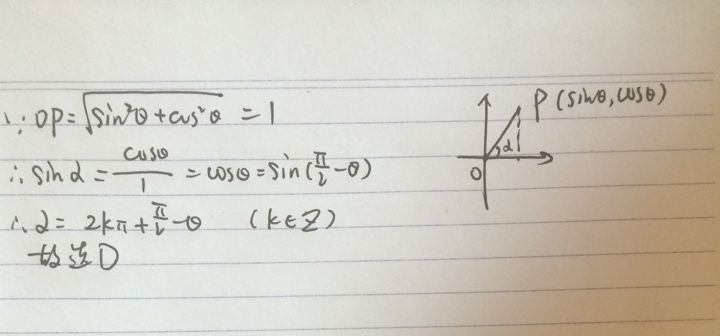 ∵ OP=√(sin²θ+cos²θ) =1
∴ sin α = cosθ/1 = cosθ = sin(π/2-θ)
∴ α= 2kπ+π/2-θ (k∈Z)
故选D
P (sinθ, cosθ)
α
O